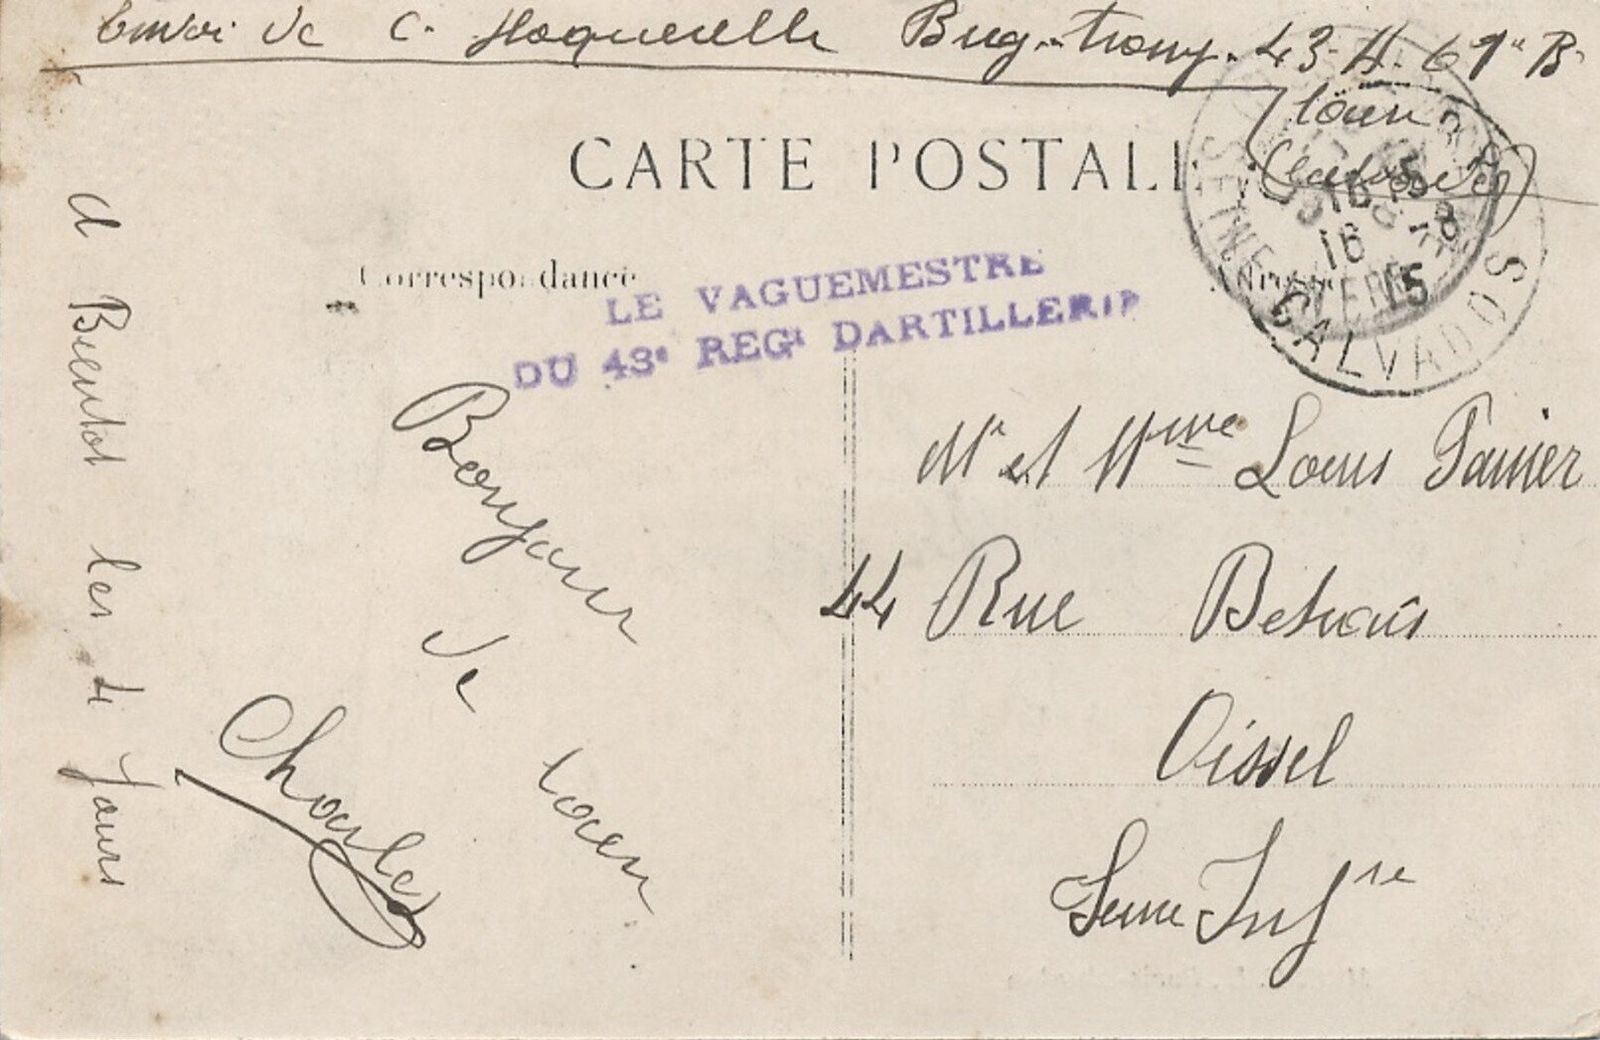 Envoi de C. Hoquerelle Brig-tromp. 43 A. 61e B.
Caen
Calvados
CARTE POSTALE
Correspondance
Adresse
LE VAGUEMESTRE
DU 43e REGt DARTILLERIE
CALVADOS
SEINE
16 15
16 -8
15
A Bientot les 4 Jours
Bonjour
de
Caen
Charles
Mr et Mme Louis Panier
44 Rue
Oissel
Seine Infre